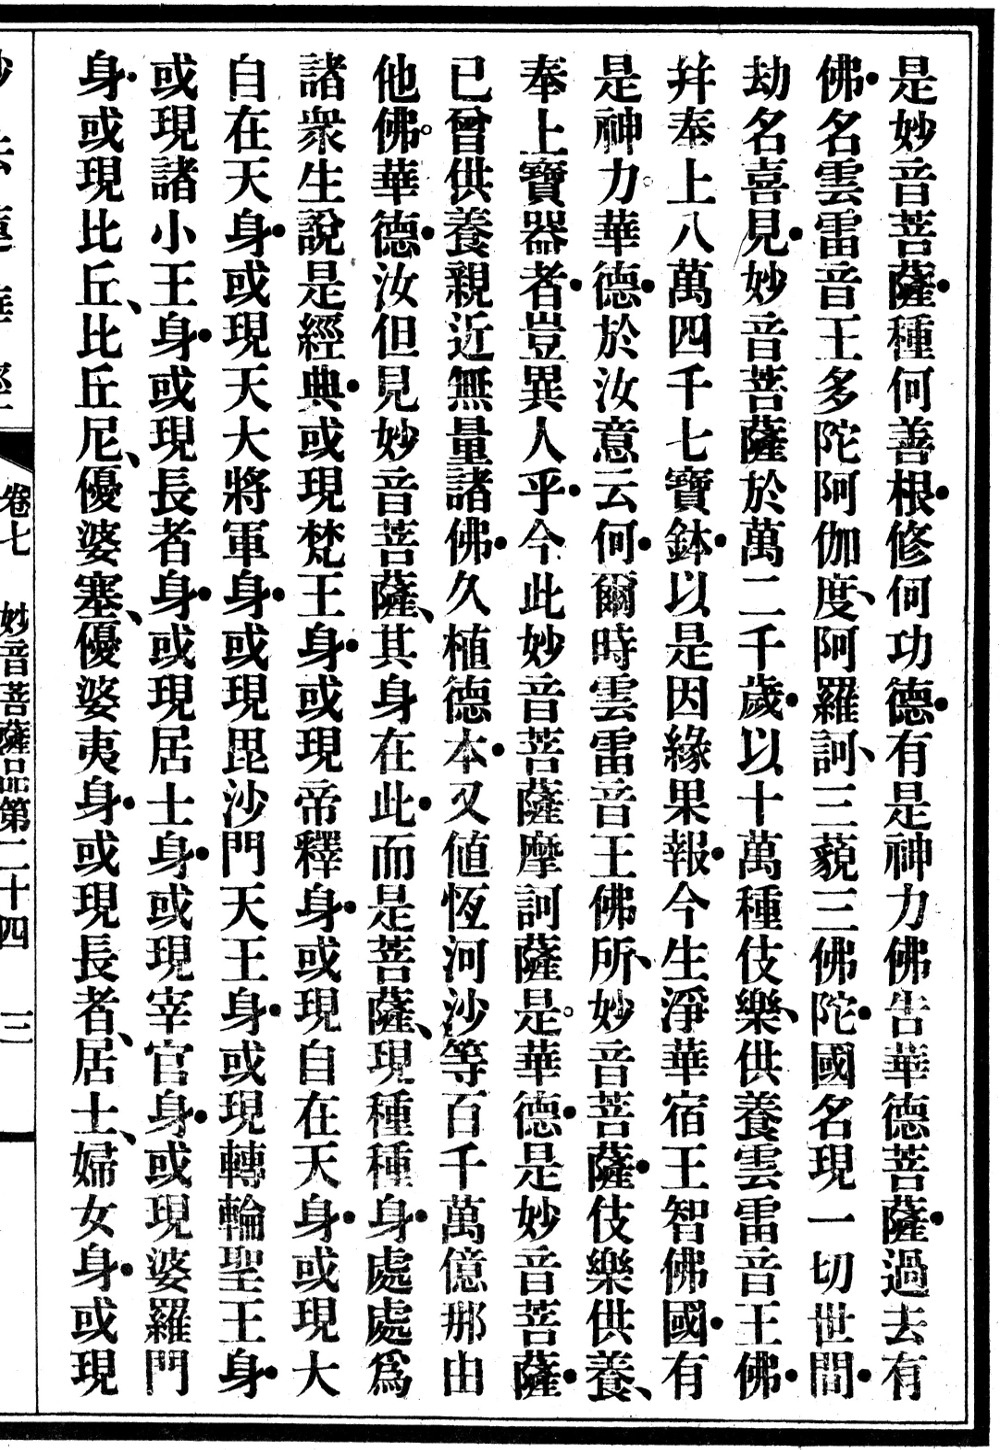 是妙音菩薩種何善根修何功德有是神力佛告華德菩薩過去有
佛名雲雷音王多陀阿伽度、阿羅訶、三藐三佛陀國名現一切世間
劫名喜見妙音菩薩於萬二千歲以十萬種伎樂、供養雲雷音王佛
幷奉上八萬四千七寶鉢以是因緣果報今生淨華宿王智佛國有
是神力。華德於汝意云何爾時雲雷音王佛所、妙音菩薩伎樂供養、
奉上寶器者豈異人乎今此妙音菩薩摩訶薩是。華德是妙音菩薩
已曾供養親近無量諸佛久植德本又值恆河沙等百千萬億那由
他佛。華德汝但見妙音菩薩、其身在此而是菩薩、現種種身處處爲
諸衆生說是經典或現梵王身或現帝釋身或現自在天身或現大
自在天身或現天大將軍身或現毘沙門天王身或現轉輪聖王身
或現諸小王身或現長者身或現居士身或現宰官身或現婆羅門
身或現比丘、比丘尼、優婆塞、優婆夷身或現長者、居士、婦女身或現
卷七 妙音菩薩品第二十四 三